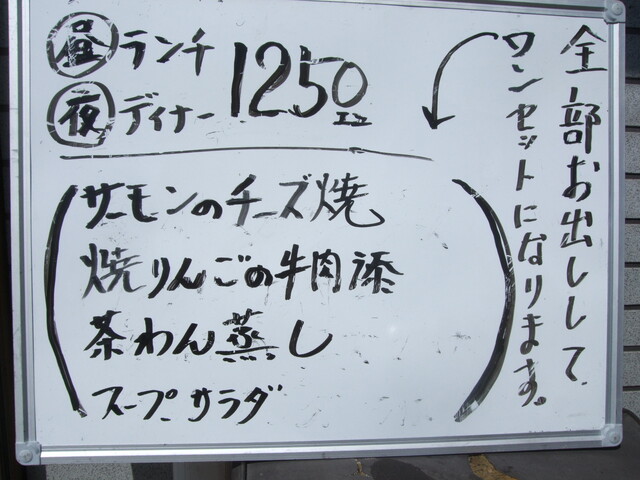 昼 ランチ
夜 ディナー
1250エン
サーモンのチーズ焼
焼りんごの牛肉添
茶わん蒸し
スープ サラダ
全部お出しして
ワンセットになります。